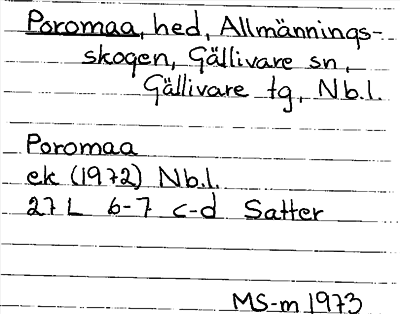 Poromaa, hed, Allmännings-
skogen, Gällivare sn,
Gällivare tg, Nb.l.
Poromaa
ek (1972) Nb.l.
27 L 6-7 c-d Satter
MS-m 1973